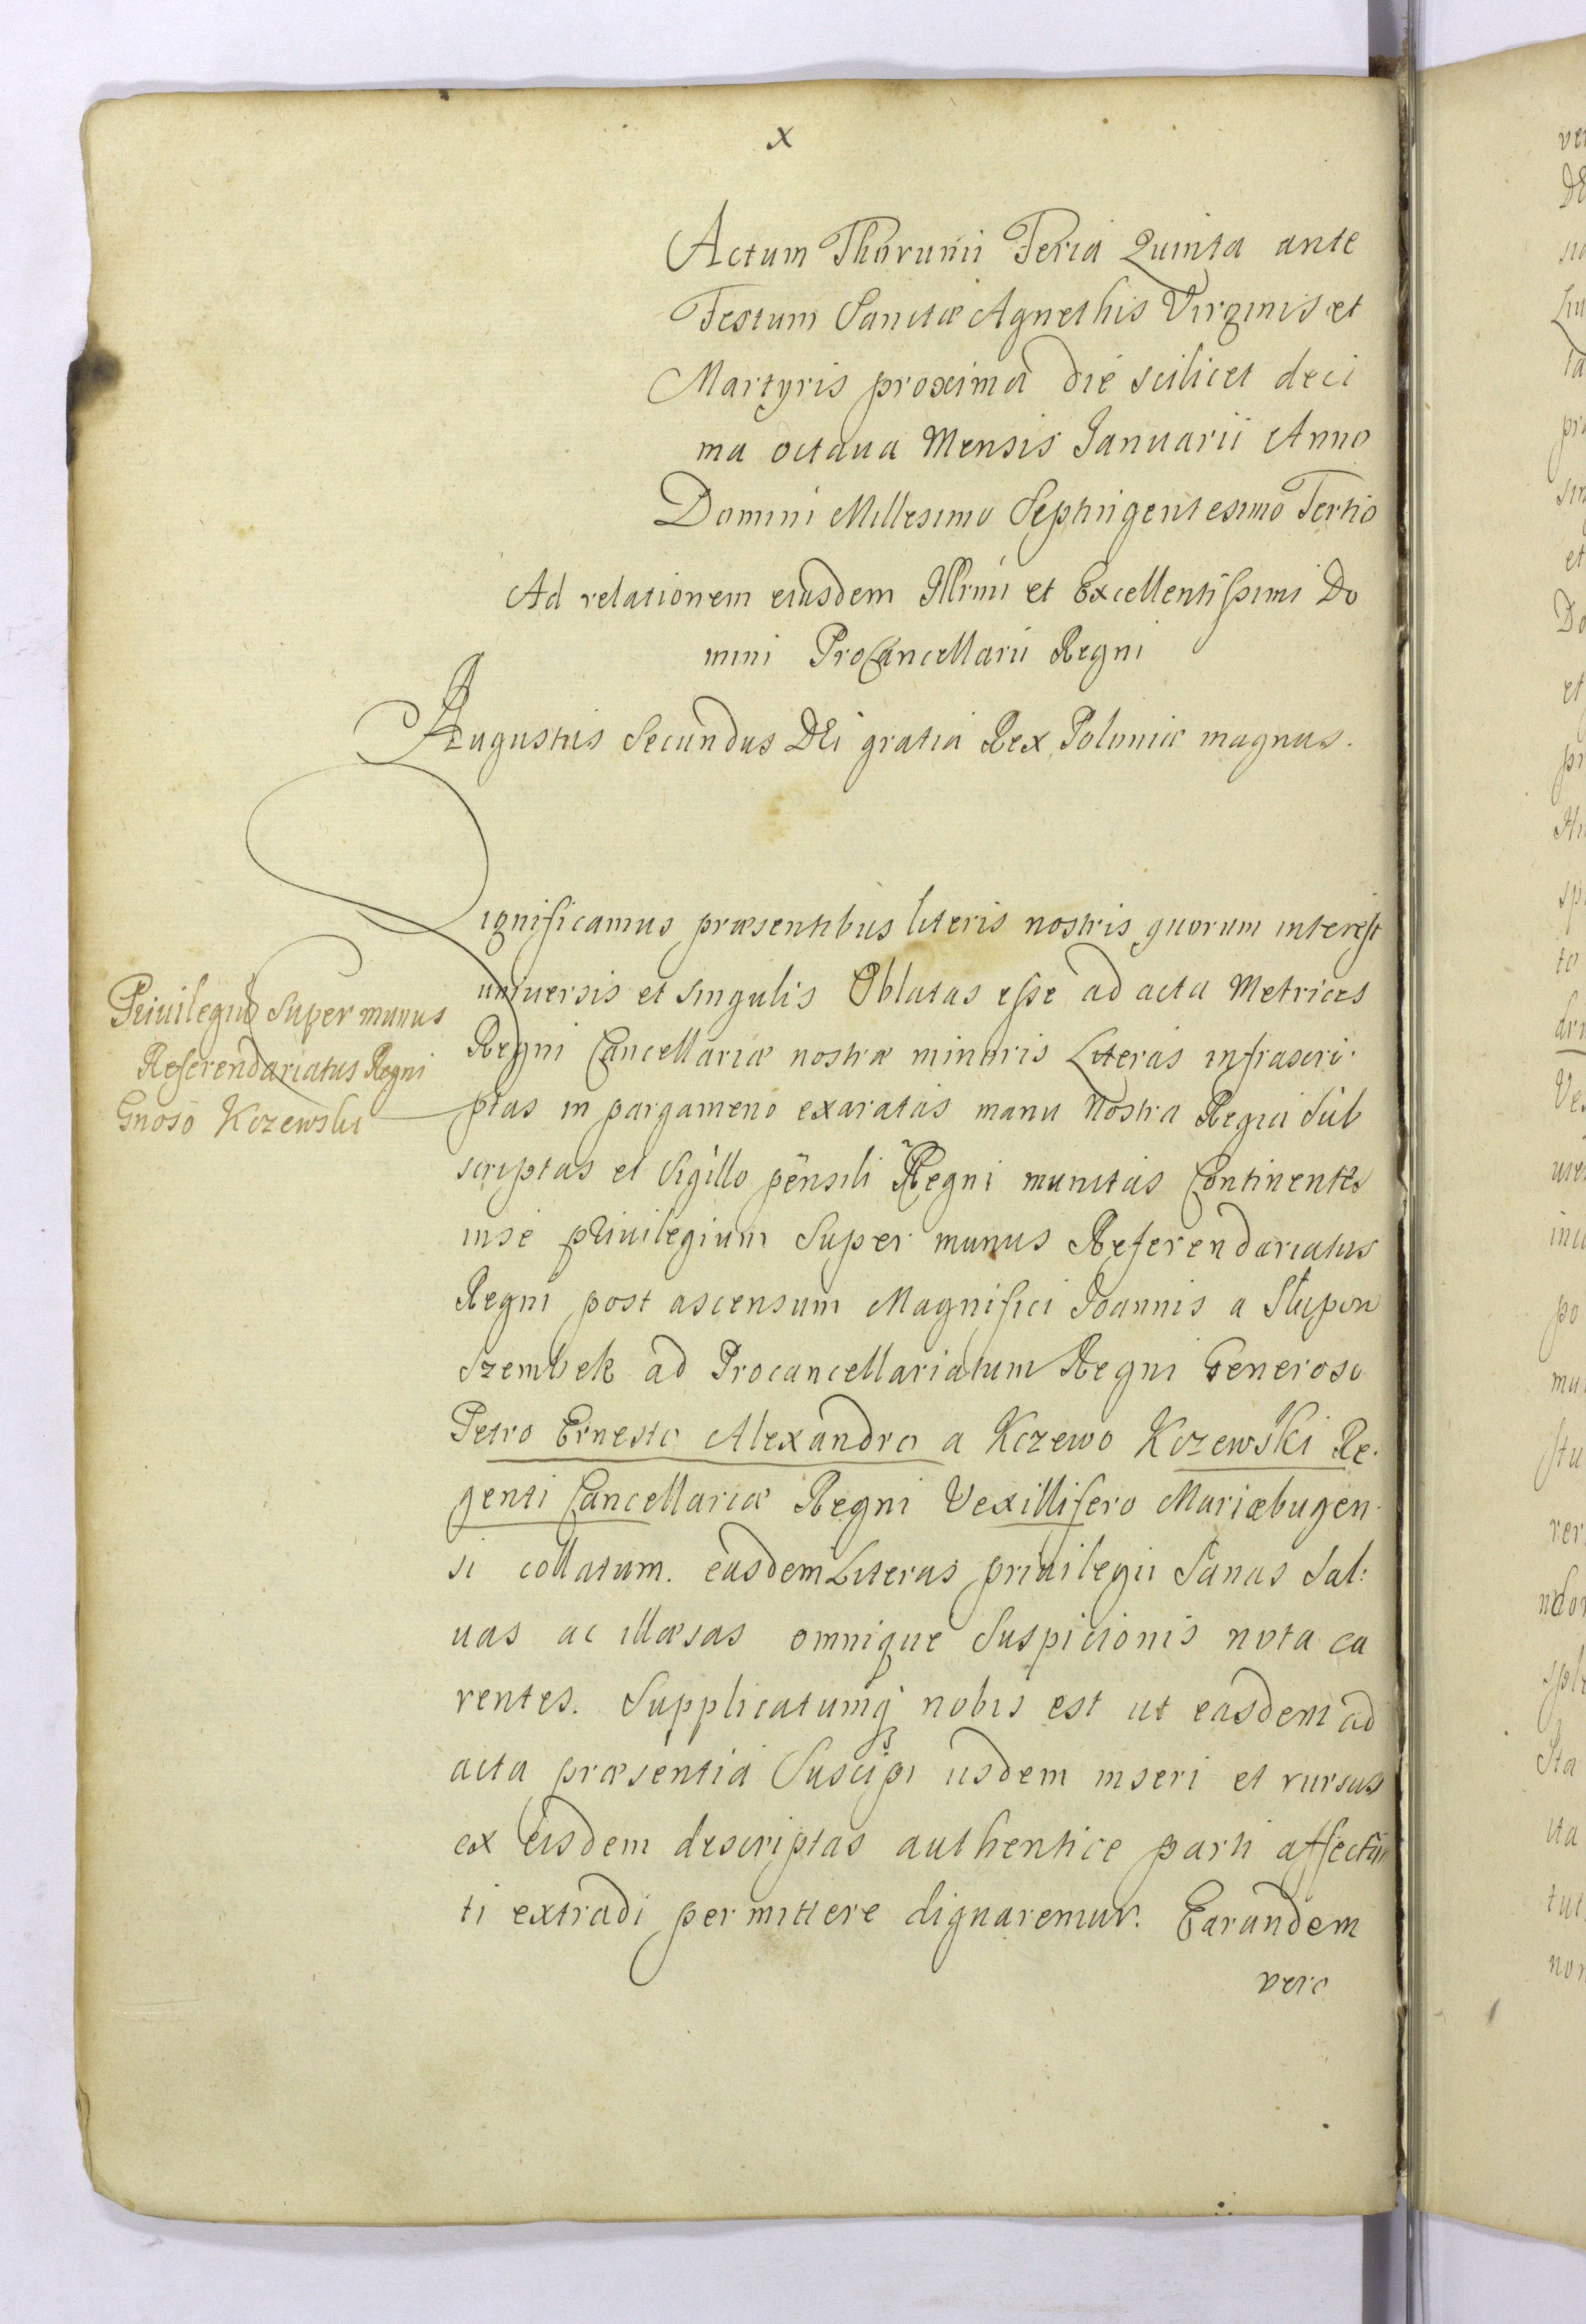 x
Actum Thorunii Feria Quinta ante
Festum Sanctæ Agnethis Virginis et
Martyris proxima die scilicet deci
ma octaua Mensis Januarii Anno
Domini Millesimo Septingentesimo Tertio
Ad relationem eiusdem Illrmi et Excellentissimi Do
mini ProCancellarii Regni
Augustus Secundus DEi gratia Rex Poloniæ magnus.
Significamus præsentibus literis nostris quorum interest
uniuersis et singulis Oblatas esse ad acta Metrices
Regni Cancellariæ nostræ minoris Literas infrascri
ptas in pargameno exaratas manu Nostra Regia sub
scriptas et Sigillo pensili Regni munitas Continentes
inse priuilegium Super munus Referendariatus
Regni post ascensum Magnifici Joannis a Slupow
Szembek ad Procancellariatum Regni Generoso
Petro Ernesto Alexandro a Kczewo Kczewski Re.
genti Cancellariæ Regni Vexillifero Mariæbugen.
si collatum. easdem Literas priuilegii Sanas Sal:
uas ac illæsas omnique Suspicionis nota ca
rentes. Supplicatumq nobis est ut easdem ad
acta præsentia Suscipi iisdem inseri et rursus
ex eisdem descriptas authentice parti affectan
ti extradi permittere dignaremur. Earundem
vero
Priuilegiũ Super munus
Referendariatus Regni
Gnoso Kczewski